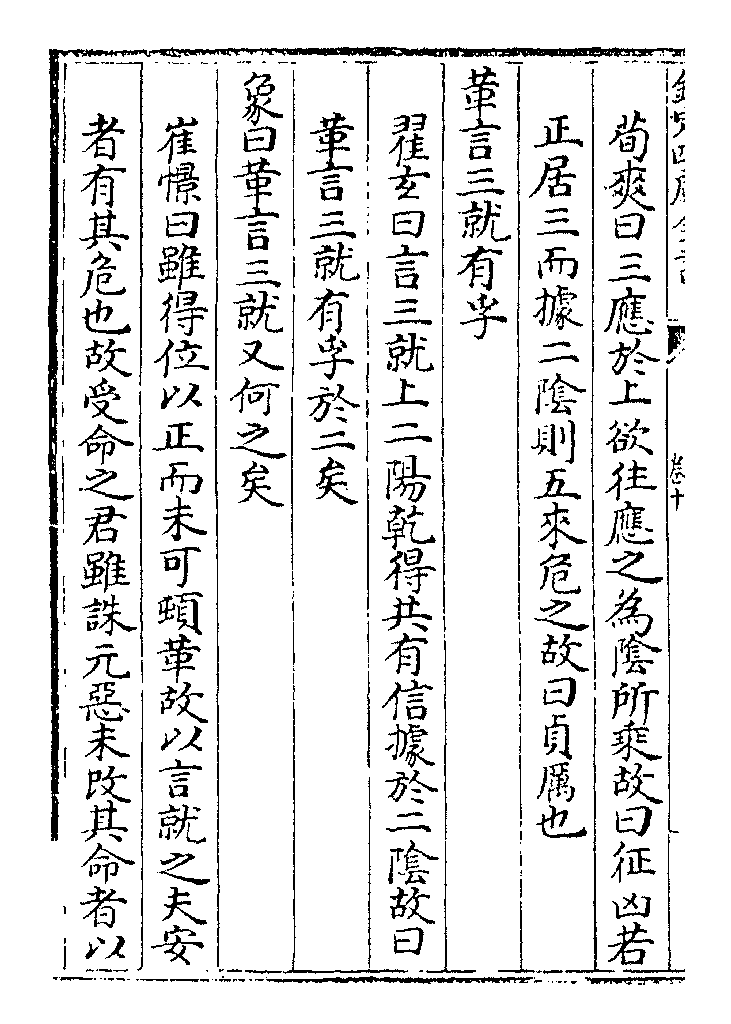 欽定四庫全書
卷十
荀爽曰三應於上欲往應之為陰所乘故曰征凶若
正居三而據二陰則五來危之故曰貞厲也
革言三就有孚
翟玄曰言三就上二陽乾得共有信據於二陰故曰
革言三就有孚於二矣
象曰革言三就又何之矣
崔憬曰雖得位以正而未可頓革故以言就之夫安
者有其危也故受命之君雖誅元惡未改其命者以